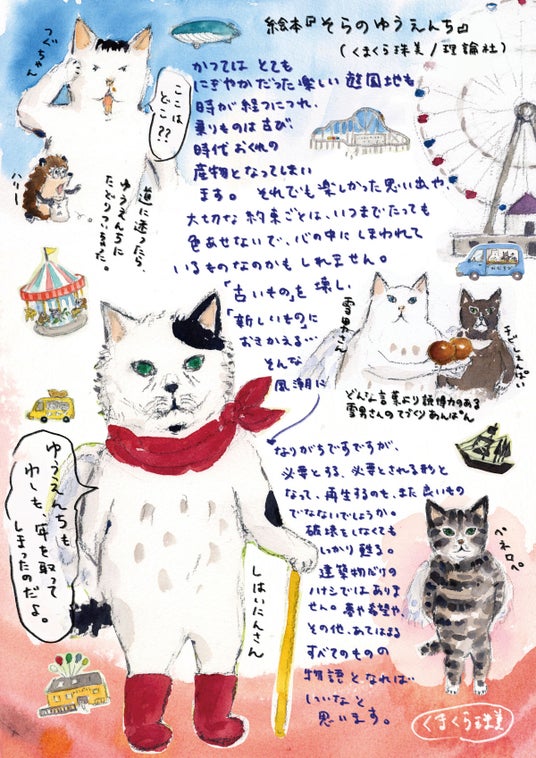 絵本『そらのゆうえんち』
(くまくら珠美/理論社)
つぐちゃん
ここは
どこ??
ハリー
道に迷ったら、
ゆうえんちに
たどりついました。
かつては とても
にぎやかだった楽しい 遊園地も
時が経つにつれ、
乗りものは古び、
時代おくれの
産物となってしまい
ます。 それでも楽しかった思い出や、
大切な約束ごとは、いつまでたっても
色あせないで、心の中にしまわれて
いるものなのかもしれません。
「古いもの」を壊し、
「新しいもの」に
おきかえる…
そんな
風潮に
雪男さん
どんな言葉より説得力のある
雪男さんのてづくりあんぱん
なりがちですですが、
必要とする、必要とされる形と
なって、再生するのも、また良いもの
でないでしょうか。
破壊をしなくても
しっかり甦る。
建築物だけの
ハナシではありま
せん。夢や希望や、
その他、あてはまる
すべてのものの
物語となれば
いいなと
思います。
ゆうえんちも
わしも、年を取って
しまったのだよ。
しはいにんさん
ペネロペ
くまくら珠美